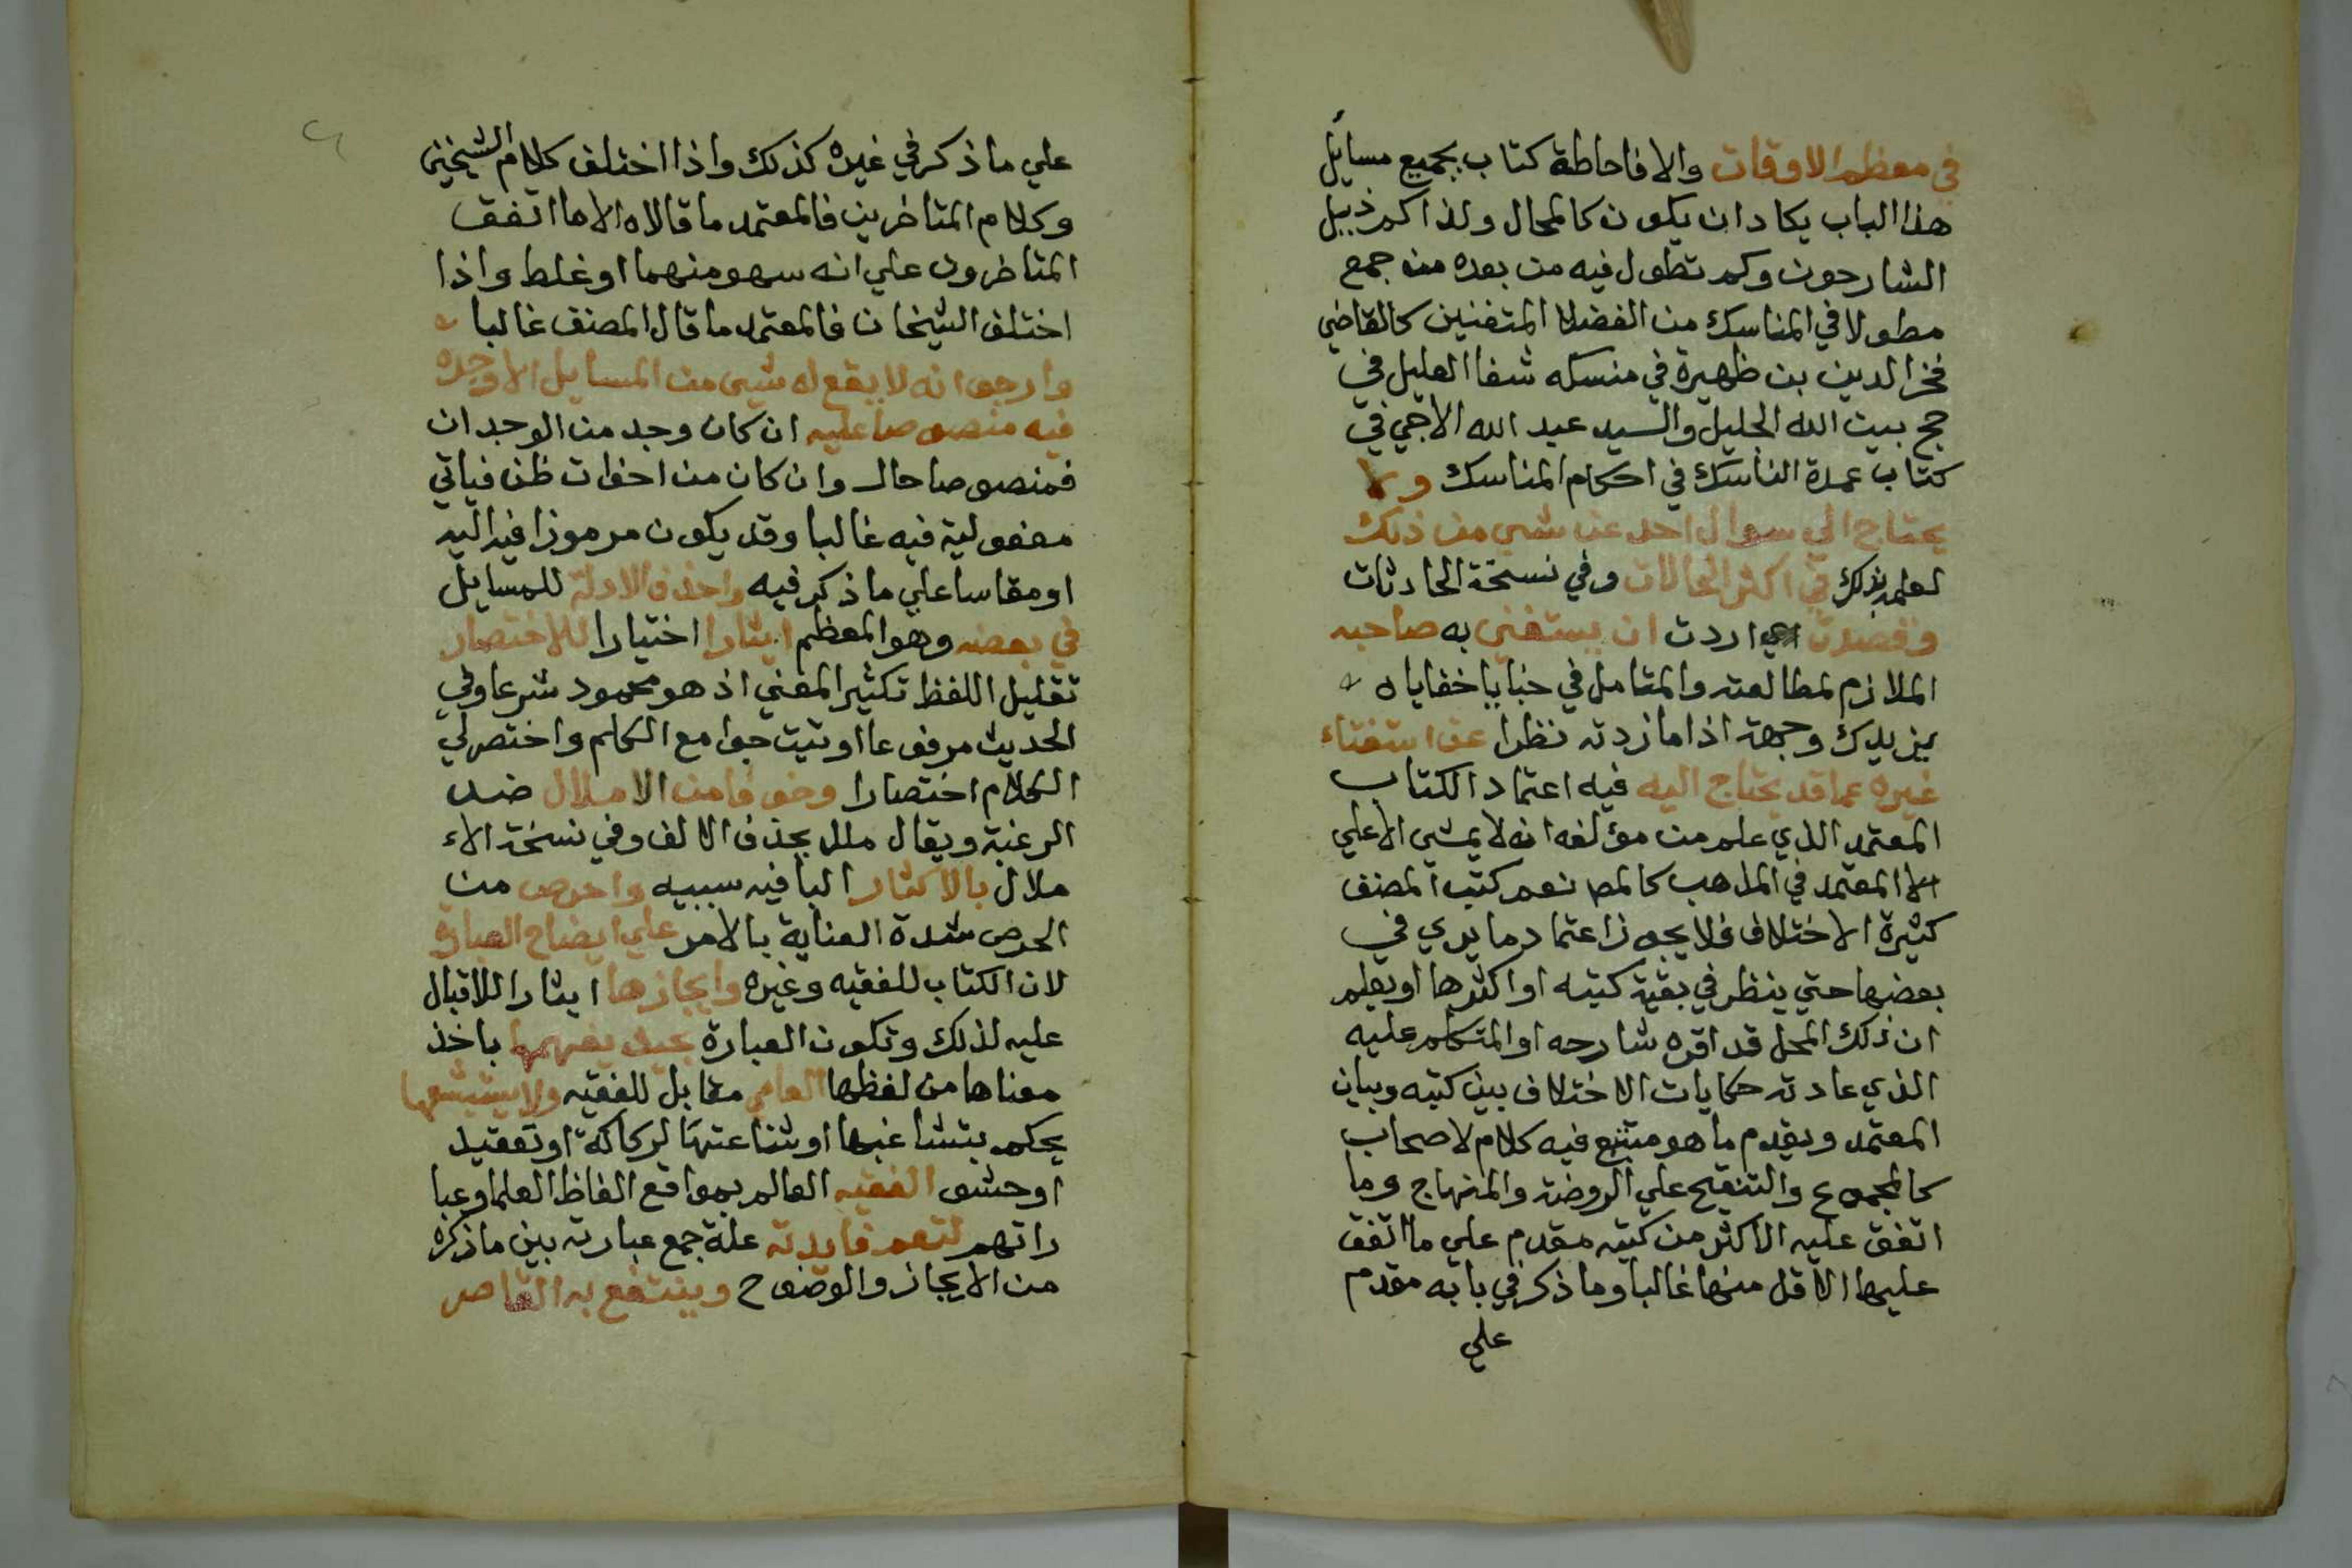 في معظم الاوقات والا فاحاطة كتاب بجميع مسايل
هذا الباب يكاد ان يكون كالمحال ولذا كم ذييل
الشارحون وكم تطول فيه من بعده من جمع
مطولا في المناسك من الفضلا المتفنين كالقاضي
فخر الدين بن ظهيرة في منسكه شفا العليل في
حج بيت الله الجليل والسيد عبد الله الاجي في
كتاب عمدة الناسك في احكام المناسك ولا
يحتاج الي سوال احد عن شي من ذلك
لعلمه بذلك في اكثر الحالات وفي نسخة الحادثات
وقصدت اي اردت ان يستغني به صاحبه
الملازم لمطالعته والمتامل في خبايا خفاياه
يزيدك وجهه اذا ما زدته نظرا عن استفتاء
غيره عما قد يحتاج اليه فيه اعتماد الكتاب
المعتمد الذي علم من مؤلفه انه لا يمشي الا علي
الا المعتمد في المذهب كالمص نعم كتب المصنف
كثيرة الاختلاف فلا يجوز اعتماد ما يري في
بعضها حتي ينظر في بقية كتبه او اكثرها او يعلم
ان ذلك المحل قد اقره شارحه او المتكلم عليه
الذي عادته حكايات الاختلاف بين كتبه وبيان
المعتمد ويقدم ما هو متتبع فيه كلام لاصحاب
كالمجموع والتنقيح علي الروضة والمنهاج وما
اتفق عليه الاكثر من كتبه مقدم علي ما اتفق
عليها الاقل منها غالبا وما ذكر في بابه مقدم
علي
علي ما ذكر في غيره كذلك واذا اختلف كلام الشيخين
وكلام المتاخرين فالمعتمد ما قالاه الا ما اتفق
المتاخرون علي انه سهو منهما او غلط واذا
اختلف الشيخان فالمعتمد ما قال المصنف غالبا
وارجوا انه لا يقع له شي من المسايل الا وجده
فيه منصوصا عليه ان كان وجد من الوجدان
فمنصوصا حال وان كان من اخوات ظن فياتي
مفعوليه فيه غالبا وقد يكون مرموزا فيه اليه
او مقاسا علي ما ذكر فيه واحذف الادلة للمسايل
في بعضه وهو المعظم ايثارا اختيارا للاختصار
تقليل اللفظ تكثير المعني اذ هو محمود شرعا وفي
الحديث مرفوعا اوتيت جوامع الكلم واختصر لي
الكلام اختصارا وخوفا من الاملال ضد
الرغبة ويقال ملل بحذف الالف وفي نسخة الاء
ملال بالاكثار البا فيه سببيه واحرص من
الحرص شدة العناية بالامر علي ايضاح العبارة
لان الكتاب للفقيه وغيره وايجازها ايثارا للاقبال
عليه لذلك وتكون العبارة بحيث يفهمها باخذ
معناها من لفظها العامي مقابل للفقيه ولا يستبشعها
يحكم بتشاغبها او شناعتها لركاكة او تعقيد
او حشو الفقيه العالم بمواقع الفاظ العلما وعبا
راتهم لتعم فايدته علة جمع عبارته بين ما ذكره
من الايجاز والوضوح وينتفع به القاصر